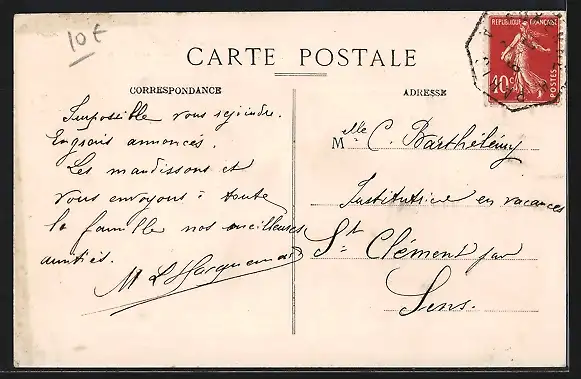 10€
CARTE POSTALE
CORRESPONDANCE
ADRESSE
REPUBLIQUE FRANÇAISE
10c
POSTES
Impossible vous rejoindre.
Engrais annoncés.
Les maudissons et
vous envoyons à toute
la famille nos meilleures
amitiés.
M L
Mlle C. Barthélémy
Institutrice en vacances
St Clément par
Sens.